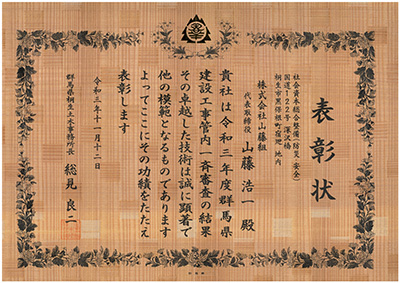 表彰状
社会資本総合整備(防災・安全)
国道122号 深沢橋
桐生市黒保根町宿廻 地内
株式会社山藤組
代表取締役 山藤 浩一 殿
貴社は令和三年度群馬県
建設工事管内一斉審査の結果
その卓越した技術は誠に顕著で
他の模範となるものであります
よってここにその功績をたたえ
表彰します
令和三年十一月十二日
群馬県桐生土木事務所長 総見 良二